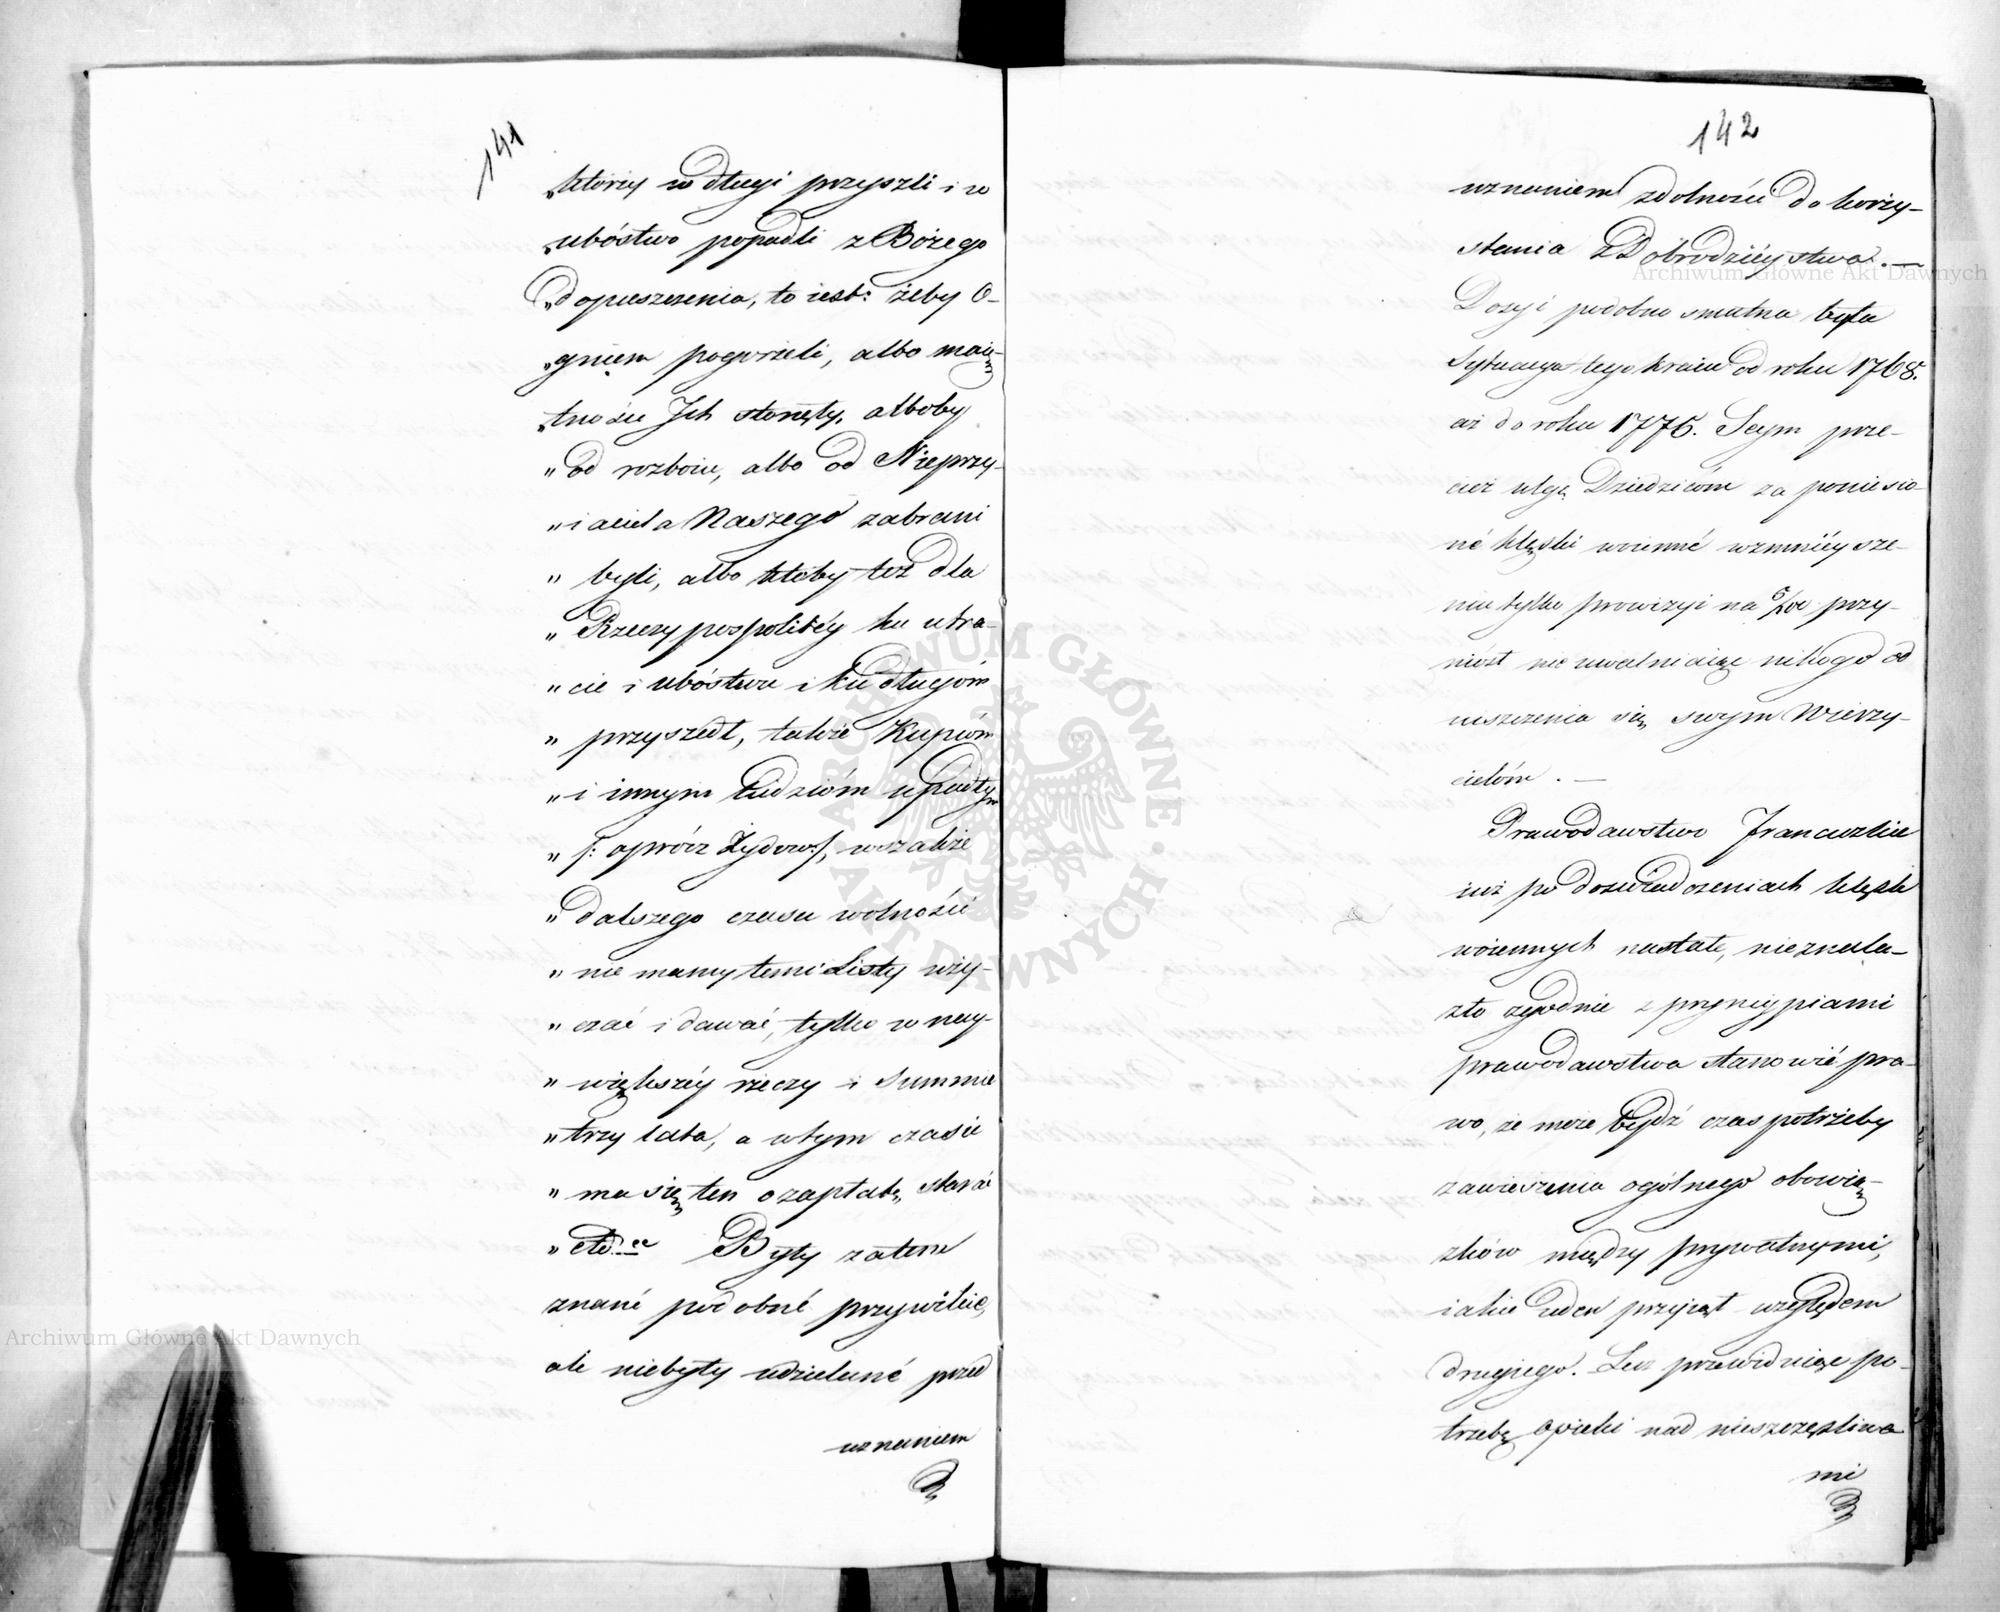 141
„którzy w długi przyszli i w
„ubóstwo popadli z Bożego
„dopuszczenia, to iest: żeby O-
„gniem pogorzeli, albo maię-
„tności Ich stonęły, alboby
„od rozboiu, albo od Nieprzy-
„iaciela Naszego zabrani
„byli, albo ktoby też dla
„Rzeczypospolitéy ku utra-
„cie i ubóstwu i ku długóm
„przyszedł, także Kupcóm
„i innym Ludzióm upadłym
„/: oprócz Żydow:/, wszakże
„dalszego czasu wolności
„nie mamy temi Listy uży-
„czać i dawać, tylko w nay-
„większéy rzeczy i Summie
„trzy lata, a wtym czasie
„ma się ten o zapłatę starać
„etc. Były zatem
znané podobné przywileie,
ale niebyły udzielané przed
uznaniem
142
uznaniem zdolności do korzy-
stania z Dobrodzieystwa. —
Dosyć podobno smutna była
Sytuacya tego kraiu od roku 1768.
aż do roku 1775. Seym prze-
cież ulgę Dziedzicóm za poniesio-
né klęski woienné wzmniéysze-
niu tylko prowizyi na 5/00 przy-
niósł nie uwalniaiąc nikogo od
uiszczenia się swym Wierzy-
cielóm. —
Prawodawstwo Francuzkie
iuż po doświadczeniach klęsk
woiennych nastałe, nieznala-
zło zgodnie z pryncypiami
prawodawstwa stanowić pra-
wo, że może bydź czas potrzeby
zawieszenia ogólnego obowią-
zków między prywatnymi,
iakie ieden przyiął względem
drugiego. Lecz przewiduiąc po-
trzebę opieki nad nieszczęśliwe-
mi
Archiwum Główne Akt Dawnych
Archiwum Główne Akt Dawnych
ARCHIWUM GŁÓWNE AKT DAWNYCH